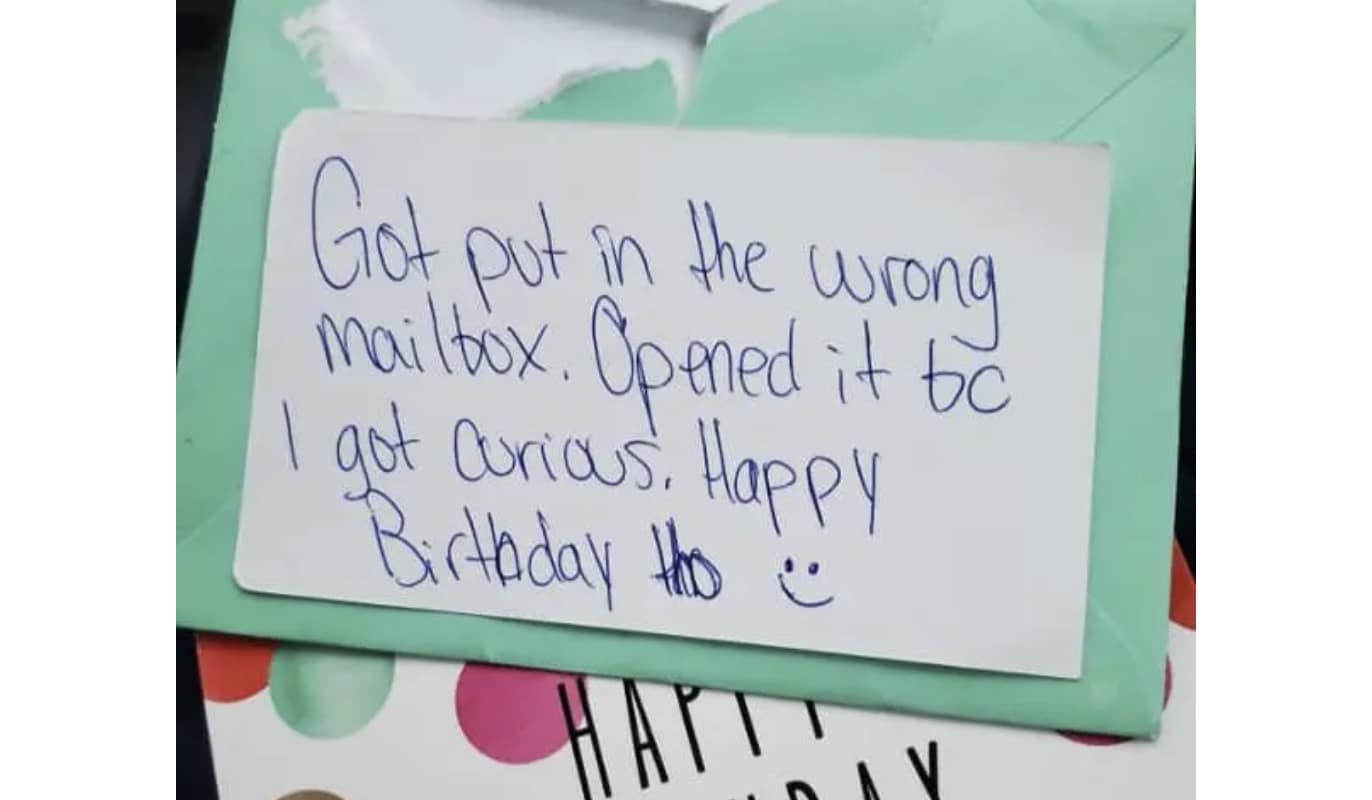 Got put in the wrong
mailbox. Opened it bc
I got curious. Happy
Birthday tho :)
HAPPY
DAY